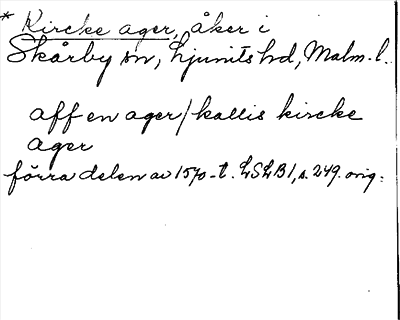 * Kircke ager, åker i
Skårby sn, Ljunits hd, Malm. l.
aff en ager/kallis kircke
ager
förra delen av 1570-t. LSLB1, s. 249. orig.